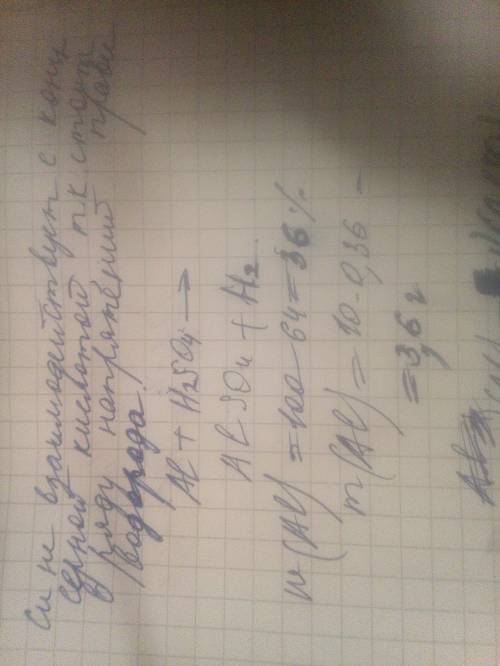 Cu не взаимодействует с конц
серной кислотой т.к. стоит
в ряду напряжений правее
водорода.
Al + H2SO4 →
AlSO4 + H2
w(Al) = 100 - 64 = 36 %
m(Al) = 10 · 0,36 =
= 3,6 г